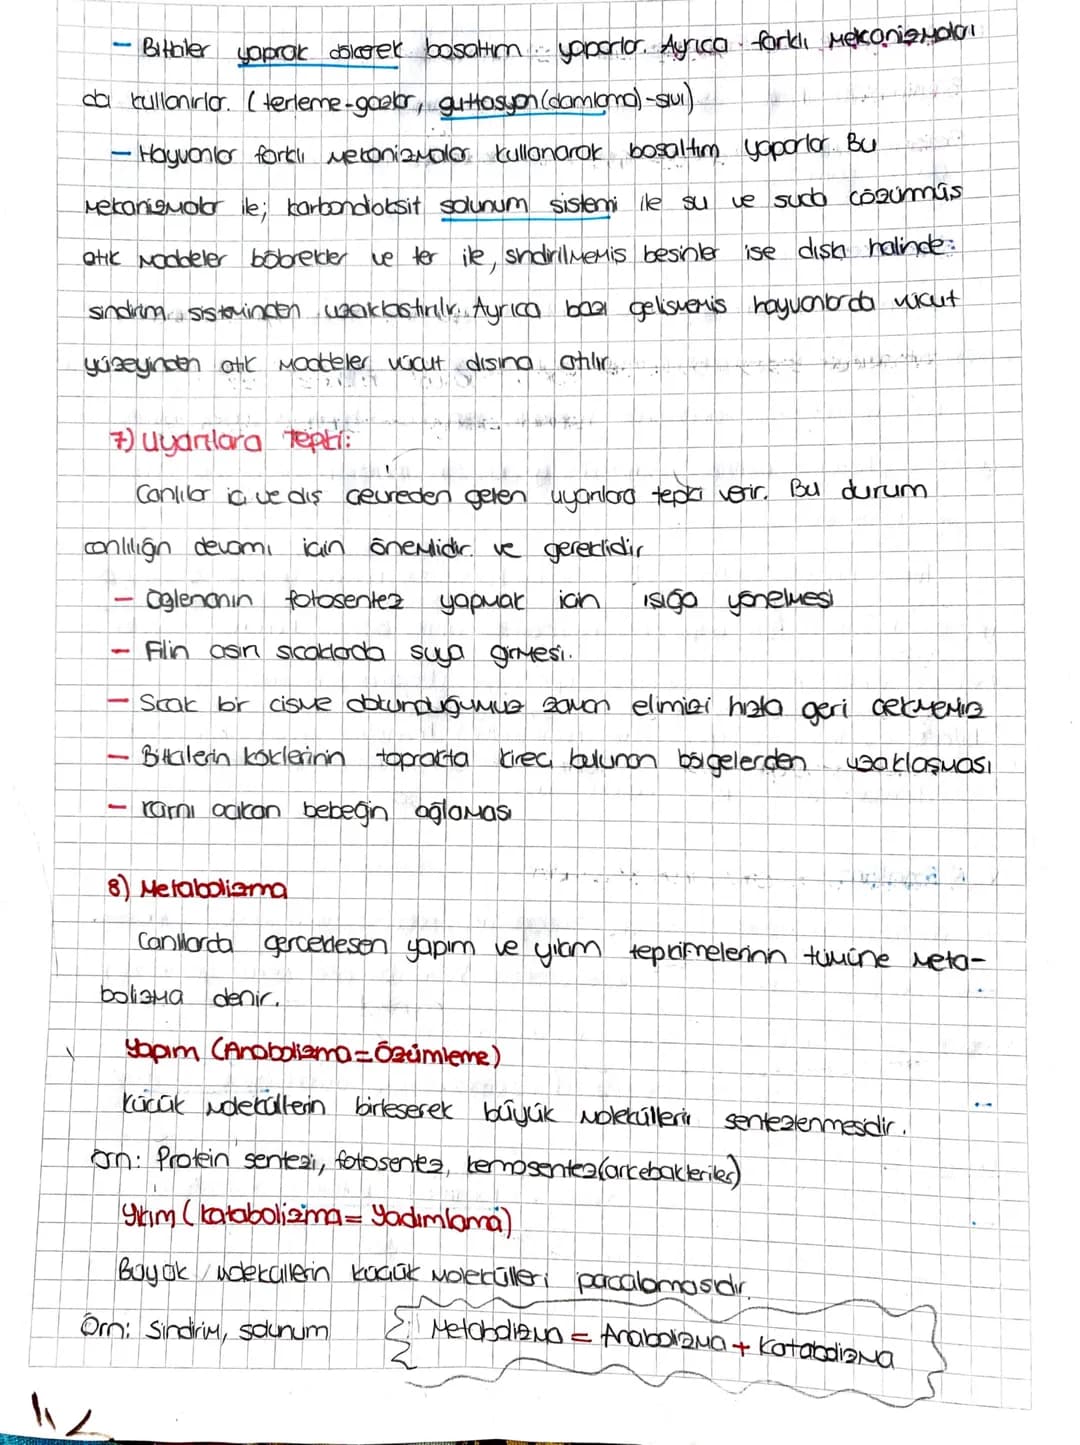 - Bitkiler yaprak dökerek boşaltım yaparlar. Ayrıca farklı mekanizmaları
da kullanırlar. (terleme-gazlar, gutasyon(damlama)-sıvı)
- Hayvanlar farklı mekanizmalar kullanarak boşaltım yaparlar. Bu
mekanizmalar ile; karbondioksit solunum sistemi ile su ve suda çözünmüş
atık maddeler böbrekler ve ter ile, sindirilmemiş besinler ise dışkı halinde
sindirim sisteminden uzaklaştırılır. Ayrıca bazı gelişmemiş hayvanlarda vücut
yüzeyinden atık maddeler vücut dışına atılır.
7) Uyarılara Tepki:
Canlılar iç ve dış çevreden gelen uyarılara tepki verir. Bu durum
canlılığın devamı için önemlidir ve gereklidir
- Öglenanın fotosentez yapmak için ışığa yönelmesi
- Filin aşırı sıcaklarda suya girmesi.
- Sıcak bir cisme dokunduğumuz zaman elimizi hızla geri çekmemiz
- Bitkilerin köklerinin toprakta kireç bulunan bölgelerden uzaklaşması
- Karnı acıkan bebeğin ağlaması
8) Metabolizma
Canlılarda gerçekleşen yapım ve yıkım tepkimelerinin tümüne meta-
bolizma denir.
Yapım (Anabolizma=Özümleme)
Küçük moleküllerin birleşerek büyük moleküllerin sentezlenmesidir.
Örn: Protein sentezi, fotosentez, kemosentez(arkebakteriler)
Yıkım (Katabolizma= Yadımlama)
Büyük moleküllerin küçük molekülleri parçalamasıdır.
Örn: Sindirim, solunum
Metabolizma = Anabolizma + Katabolizma